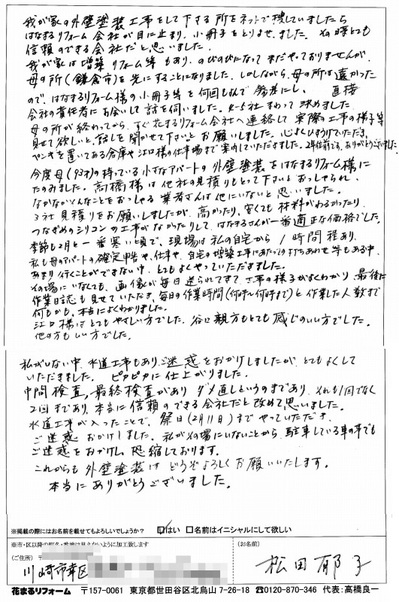 我が家の外壁塗装工事をして下さる所をネットで捜していましたら
はなまるリフォーム会社が目に止まり、小冊子をとりよせました。その時とても
信頼のできる会社だと思いました。
我が家は増築リフォーム等もあり、のびのびになってまだやっておりませんが、
母の所(鎌倉市)を先にすることになりました。しかしながら、母の所は遠かった
ので、はなまるリフォーム様の小冊子等を何回もよんで参考にし、直接
会社の責任者にお会いして話を伺いました。4〜5社まわって決めました。
母の所が終わってから、すぐ花まるリフォーム会社へ連絡して実際の工事の様子等
見せて欲しいと、話しを聞かせて下さいとお願いしました。心よくひきうけていただき、
ペンキを置いてある倉庫や江口様の仕事場まで案内していただきました。
今度母(93才)の持っている小さなアパートの外壁塗装をはなまるリフォーム様に
たのみました。高橋様は他社の見積りもとって下さいとおっしゃられ、
なかなかそんなことをおっしゃる業者さんは他にいないと思いました。
3社見積りをお願いしましたが、高かったり、安くても材料がわるかったり、
つなぎめのシリコンの工事がなかったりして、はなまるさんが一番適正な価格でした。
季節も2月と一番寒い頃で、現場は私の自宅から1時間程あり、
私も母のアパートの確定申告や、仕事や、自宅の増築工事にあたってのうちあわせ等もある中、
あまり行くことができない中、とてもよくやっていただきました。
その場にいなくても、画像が毎日送られてきて工事の様子がよくわかり、最後に
作業日誌も見せていただき、毎日の作業時間(何時〜何時まで)と作業した人数まで
何もかも、本当によくわかりました。
江口様はとてもやさしい方でした。谷口親方もとても感じのいい方でした。
他の方もいい方でした。
私がいない中、水道工事もあり迷惑をおかけしましたが、とてもよくして
いただきました。ピカピカに仕上がりました。
中間検査、最終検査があり、ダメ直しというのまであり、それも1回でなく
2回まであり、本当に信頼のできる会社だと改めて思いました。
水道工事が入ったことで、祭日(2月11日)までやっていただき、
ご迷惑おかけしました。私が現場にいないことから、駐車している車の事でも
ご迷惑をおかけし、恐縮しております。
これからも外壁塗装はどうぞよろしくお願いいたします。
本当にありがとうございました。
※掲載の際にはお名前を載せてもよろしいでしょうか? ☑はい □名前はイニシャルにして欲しい
(ご住所) 川崎市幸区
(お名前) 松田郁子
花まるリフォーム 〒157-0061 東京都世田谷区北烏山7-26-18 0120-870-346 代表:高橋良一